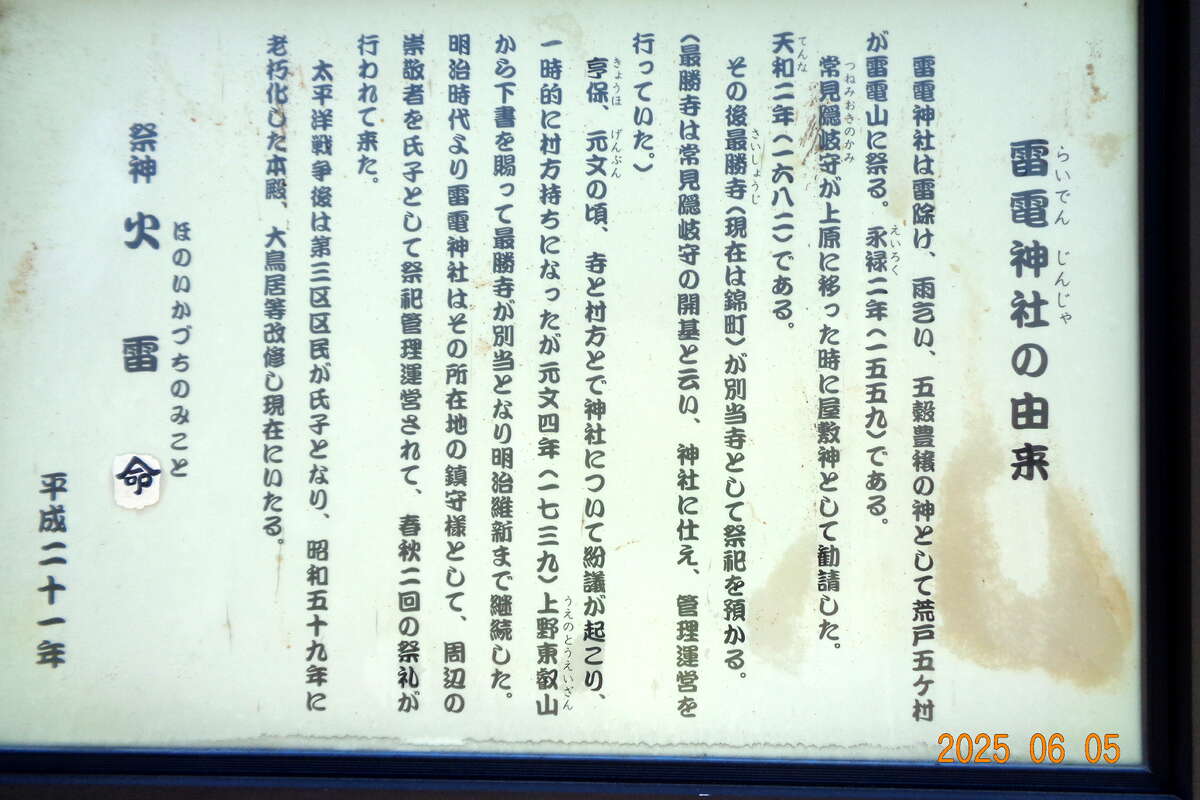 雷電神社の由来
らいでん じんじゃ
雷電神社は雷除け、雨乞い、五穀豊穣の神として荒戸五ケ村
が雷電山に祭る。永禄二年(一五五九)である。
えいろく
常見隠岐守が上原に移った時に屋敷神として勧請した。
つねみおきのかみ
天和二年(一六八二)である。
てんな
その後最勝寺(現在は錦町)が別当寺として祭祀を預かる。
さいしょうじ
(最勝寺は常見隠岐守の開基と云い、神社に仕え、管理運営を
行っていた。)
享保、元文の頃、寺と村方とで神社について紛議が起こり、
きょうほ げんぶん
一時的に村方持ちになったが元文四年(一七三九)上野東叡山
うえのとうえいざん
から下書を賜って最勝寺が別当となり明治維新まで継続した。
明治時代より雷電神社はその所在地の鎮守様として、周辺の
崇敬者を氏子として祭祀管理運営されて、春秋二回の祭礼が
行われて来た。
太平洋戦争後は第三区区民が氏子となり、昭和五十九年に
老朽化した本殿、大鳥居等改修し現在にいたる。
ほのいかづちのみこと
祭神 火雷命
平成二十一年
2025 06 05